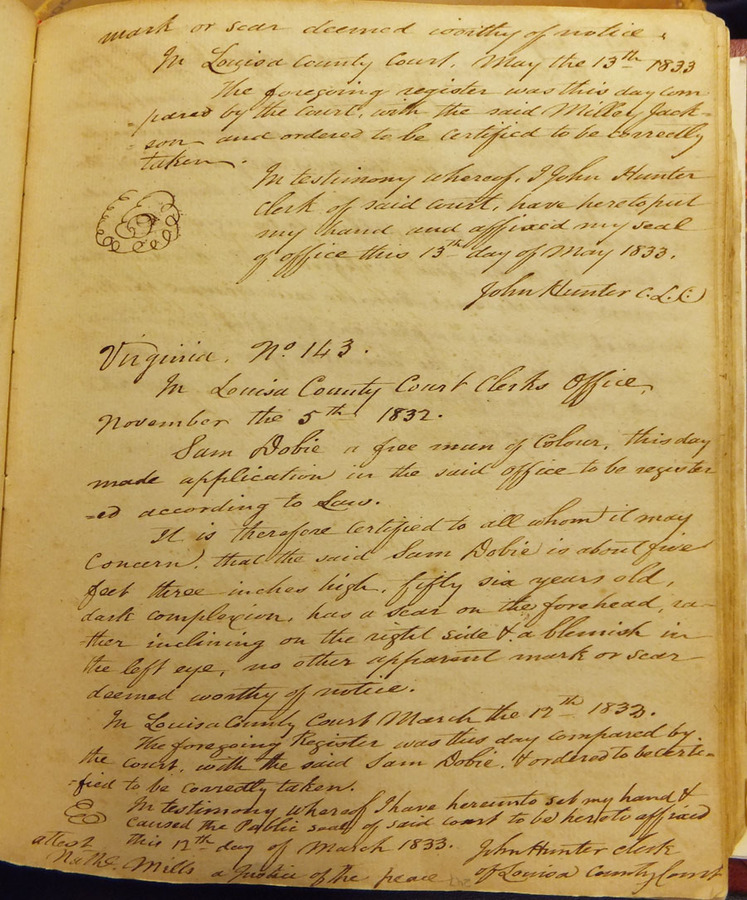 mark or scar deemed worthy of notice.
In Louisa County Court, May the 13th 1833
The foregoing register was this day com
=pared by the Court, with the said Milley Jack-
=son and ordered to be certified to be correctly
taken.
In testimony whereof, I John Hunter
clerk of said court, have hereto put
my hand and affixed my seal
of office this 13th day of May 1833.
John Hunter C.L.C
Virginia. No 143.
In Louisa County Court Clerks Office,
November the 5th 1832.
Sam Dobie a free man of Colour, this day
made application in the said office to be register
=ed according to Law.
It is therefore Certified to all whom it may
Concern, that the said Sam Dobie is about five
feet three inches high, fifty six years old,
dark complexion, has a scar on the forehead, ra-
ther inclining on the right side & a blemish in
the left eye, no other apparent mark or scar
deemed worthy of notice.
In Louisa County Court March the 12th 1833.
The foregoing Register was this day compared by
the Court, with the said Sam Dobie, & ordered to be certi=
=fied to be correctly taken.
In testimony whereof I have hereunto set my hand &
caused the Public seal of said court to be hereto affixed
this 12th day of March 1833.
John Hunter clerk
of Louisa County Court
attest
Nathl. Mills a Justice of the peace